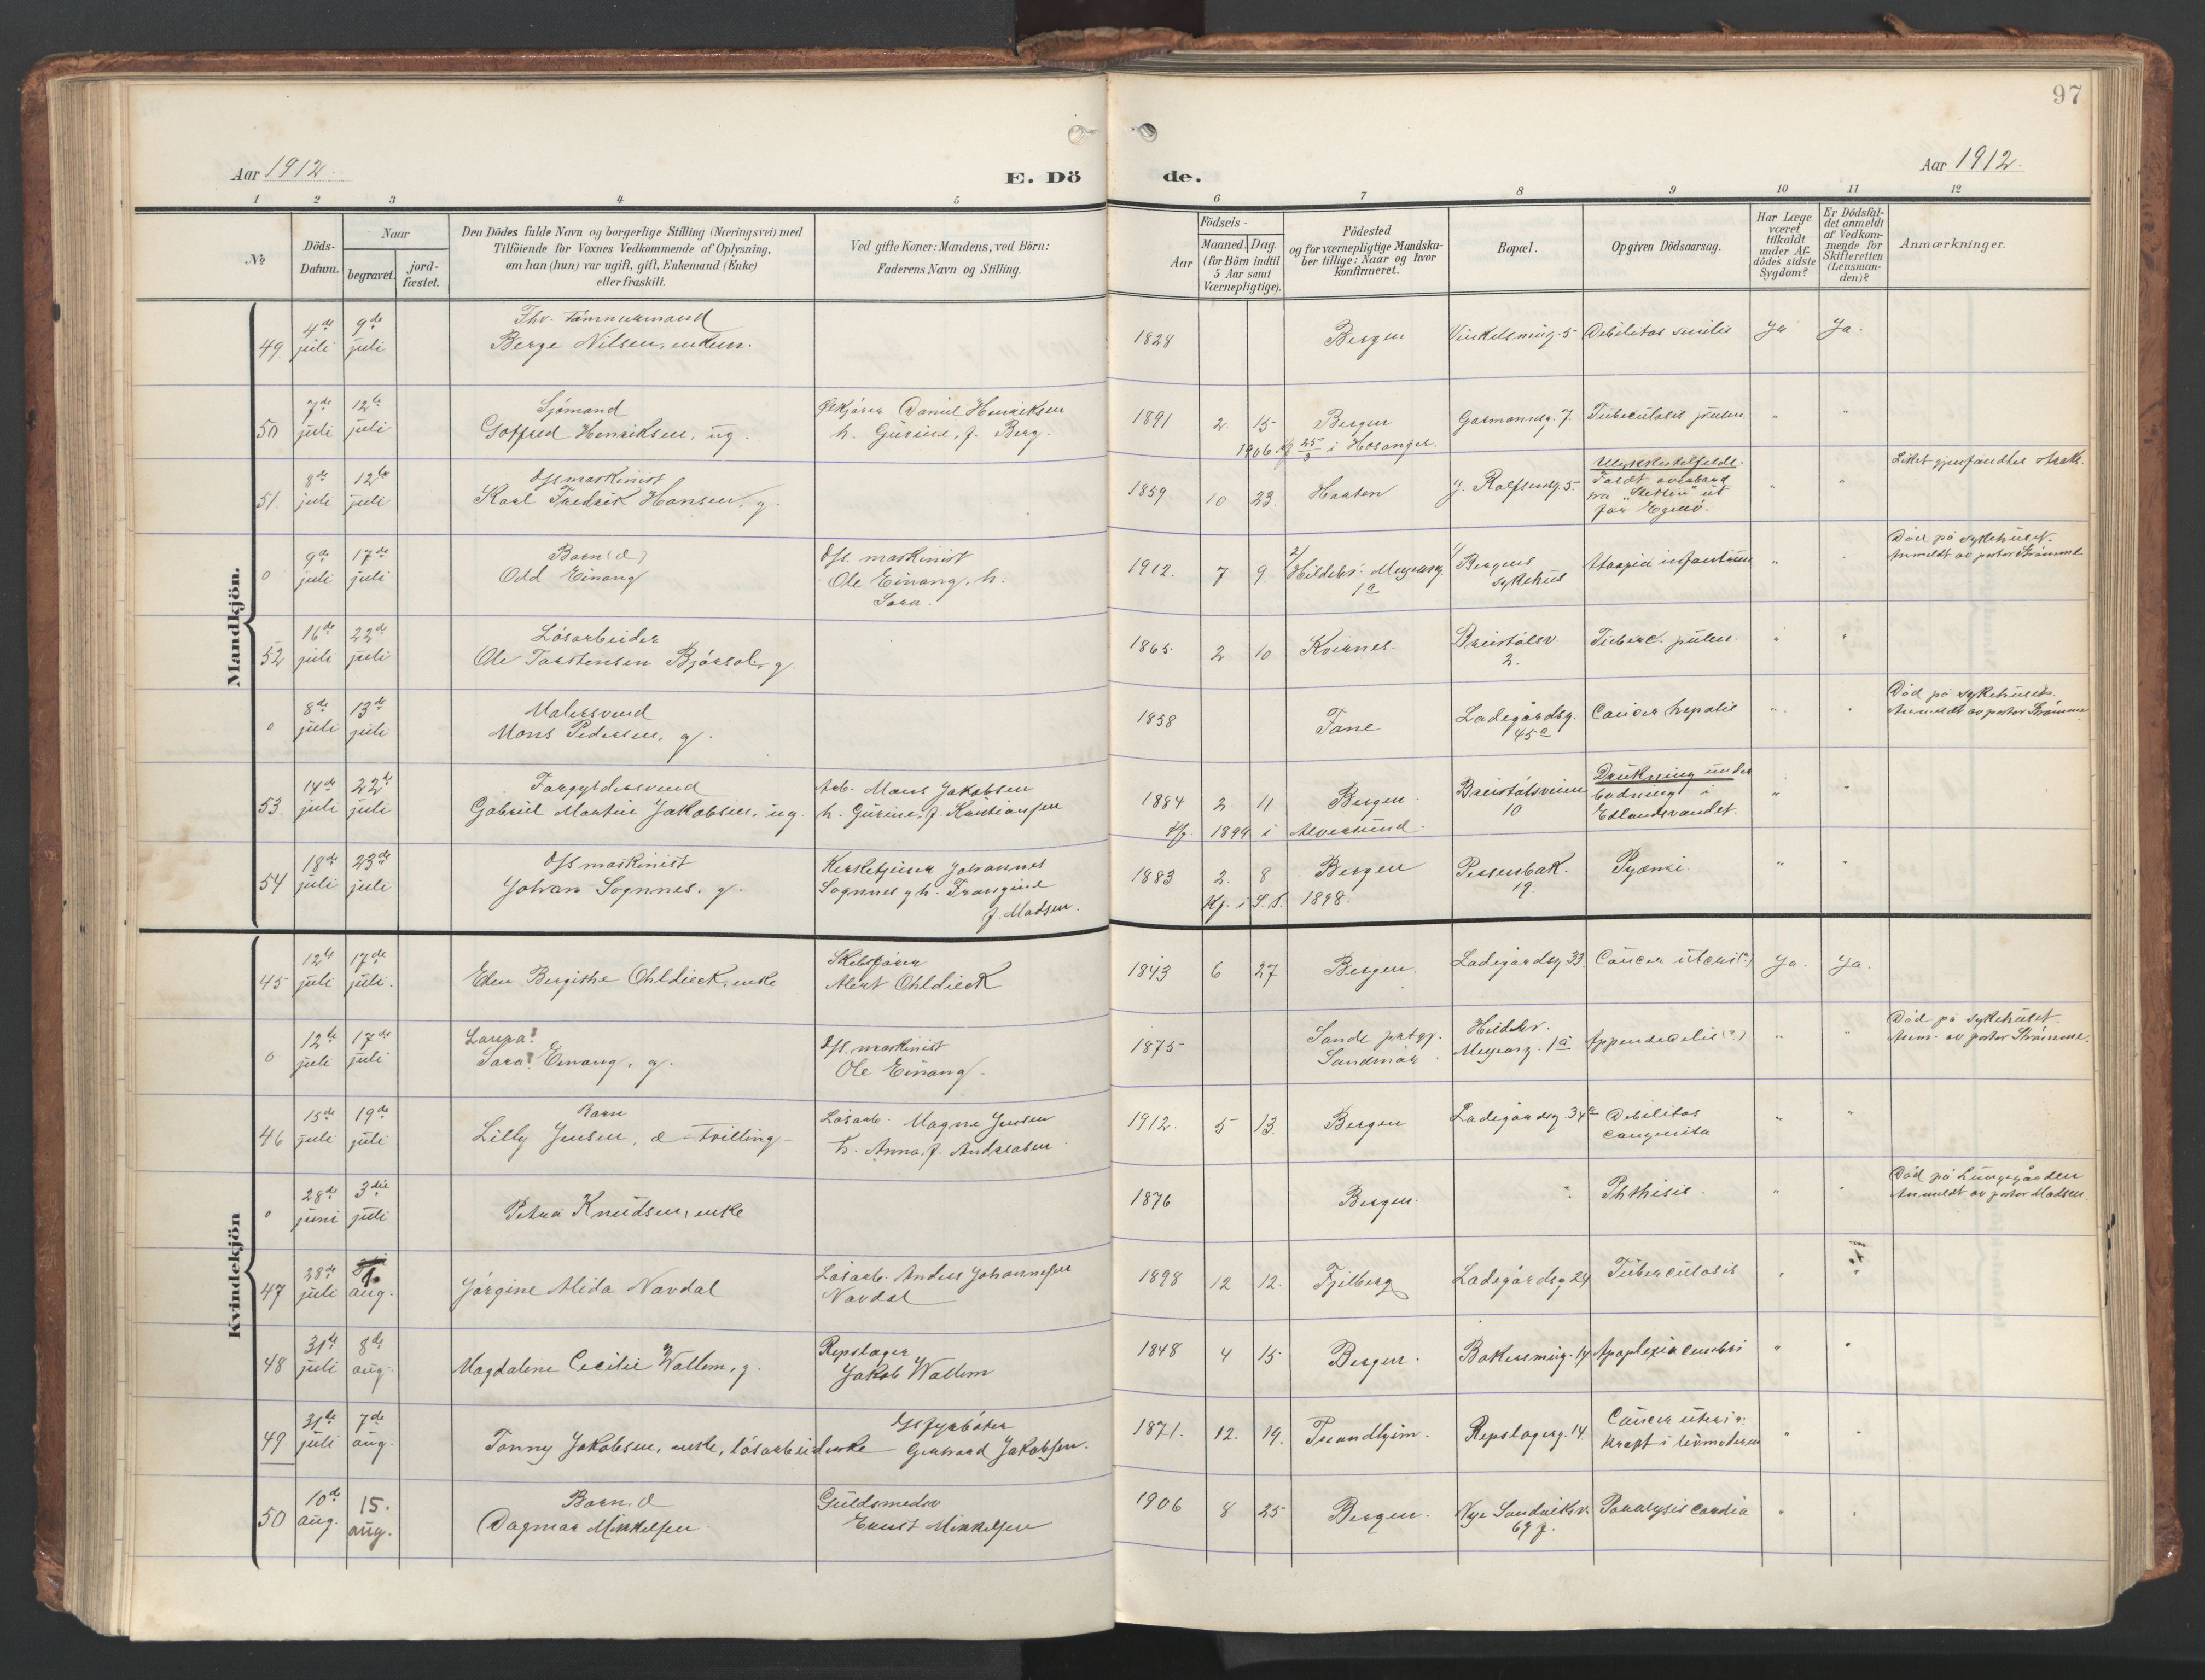 97
Aar 1912.
E. Dö de.
Aar 1912.
1 2 3 4 5 6 7 8 9 10 11 12
No
Döds-
Datum.
Naar
begravet.
jord-
fæstet.
Den Dödes fulde Navn og borgerlige Stilling (Næringsvei) med
Tilföiende for Voxnes Vedkommende af Oplysning,
om han (hun) var ugift, gift, Enkemand (Enke)
eller fraskilt.
Ved gifte Koner: Mandens, ved Börn:
Faderens Navn og Stilling.
Födsels-
Aar
Maaned. Dag.
(for Börn indtil
5 Aar samt
Værnepligtige).
Födested
og for værnepligtige Mandska-
ber tillige: Naar og hvor
konfirmeret.
Bopæl.
Opgiven Dödsaarsag.
Har Læge
været
tilkaldt
under Af-
dödes sidste
Sygdom?
Er Dödsfal-
det anmeldt
af Vedkom-
mende for
Skifteretten
(Lensman-
den)?
Anmærkninger.
Mandkjön.
49. 4de juli 9de juli
Fhv. tömmermand
Berge Nilsen, enkem.
1828 Bergen Vinkelsmug. 5 Debilitas senilis Ja Ja.
50 7de juli 12te juli
Sjömand
Gotfred Henriksen, ug.
Daniel Henriksen
h. Gurine, f. Berg.
1891 2. 15 Bergen Gasmannsg. 7. Tuberculosis pulm. " "
1906. 25/3 i Hosanger.
51. 8de juli 12te juli
Karl Fredrik Hansen, g.
1859 10 23. Horten J. Rolfsensg. 5. Ulykkestilfelde.
Faldt overbord
fra "Stettin" ut
for Egerö. " "
Liket gjenfandtes straks.
0 9de juli 17de juli
Barn (d)
Odd Einang
maskinist
Ole Einang, h.
Sara.
1912. 7 9. Hildebr. Meyersg.
1a
Bergens
sykehus
Atropia infantum "
Död på sykehuset.
Anmeldt av pastor Strömme
52 16de juli 22de juli
Lösarbeider
Ole Torstensen Björsol, g.
1865. 2 10 Kvernes. Breistölsv.
2. Tuberc. pulm. " "
0 8de juli 13de juli
Malersvend
Mons Pedersen, g.
1858 Fane Ladegårdsg.
45a Cancer hepatis " "
Död på sykehuset.
Anmeldt av pastor Strömme
53. 14de juli 22de juli
Gabriel Martin Jakobsen, ug.
Arb. Mons Jakobsen
h. Gurine, f. Kristiansen
1884 2. 11 Bergen. Breistölsveien
10 Drukning under
badning i
Eslandsvandet. " "
Kf. 1899 i Alversund.
54 18de juli 23de juli
maskinist
Johan Sognnes, g.
Johannes
Sognnes g h. Fransine
f. Madsen.
1883 2. 8 Bergen Pessenbak.
19 Pyæmi. " "
Kf. i S.S. 1898.
Kvindekjön
45 12te juli 17de juli.
Elen Bergithe Ohldieck, enke
Skibsförer
Alert Ohldieck
1843 6 27 Bergen. Ladegårdsg. 33. Cancer uteri(?) Ja. Ja.
0 12te juli 17de juli
Laura?
Sara? Einang, g.
maskinist
Ole Einang.
1875 Sande
Söndmör Hildebr.
Meyersg. 1a Appendecitis(?) " "
Död på sykehuset.
Anm. av pastor Strömme.
46 15de juli 19de juli
Barn
Lilly Jensen, d - tvilling -
Lösarb. Magne Jensen
h. Anna, f. Andreasen
1912. 5 13. Bergen Ladegårdsg. 34a Debilitas
congenita " "
0 28de juni 3die juli
Petra Knudsen, enke
1876 Bergen. " Phthisis. " "
Död på Lungegården
Anmeldt av pastor Madsen.
47 28de juli 1. aug.
Jörgine Alida Navdal
Lösarb. Anders Johannesen
Navdal
1898 12 12. Fjelberg Ladegårdsg 24 Tuberculosis "
48 31te juli 8de aug.
Magdalene Cecilie Wallem, g.
Repslager
Jakob Wallem
1848 4 15 Bergen. Bakersmug. 14 Apoplexia cerebri " "
49 31te juli 7de aug.
Tonny Jakobsen, enke, lösarbeiderske
fyrböter
Gerhard Jakobsen.
1871. 12. 19. Trondhjem. Repslagerg. 14. Cancer uteri:
kræft i livmoderen " "
50 10de aug. 15. aug.
Barn, d
Dagmar Mikkelsen
Guldsmedsv
Ernst Mikkelsen
1906 8 25 Bergen. Nye Sandviksv.
69 f. Paralysis cordia " "